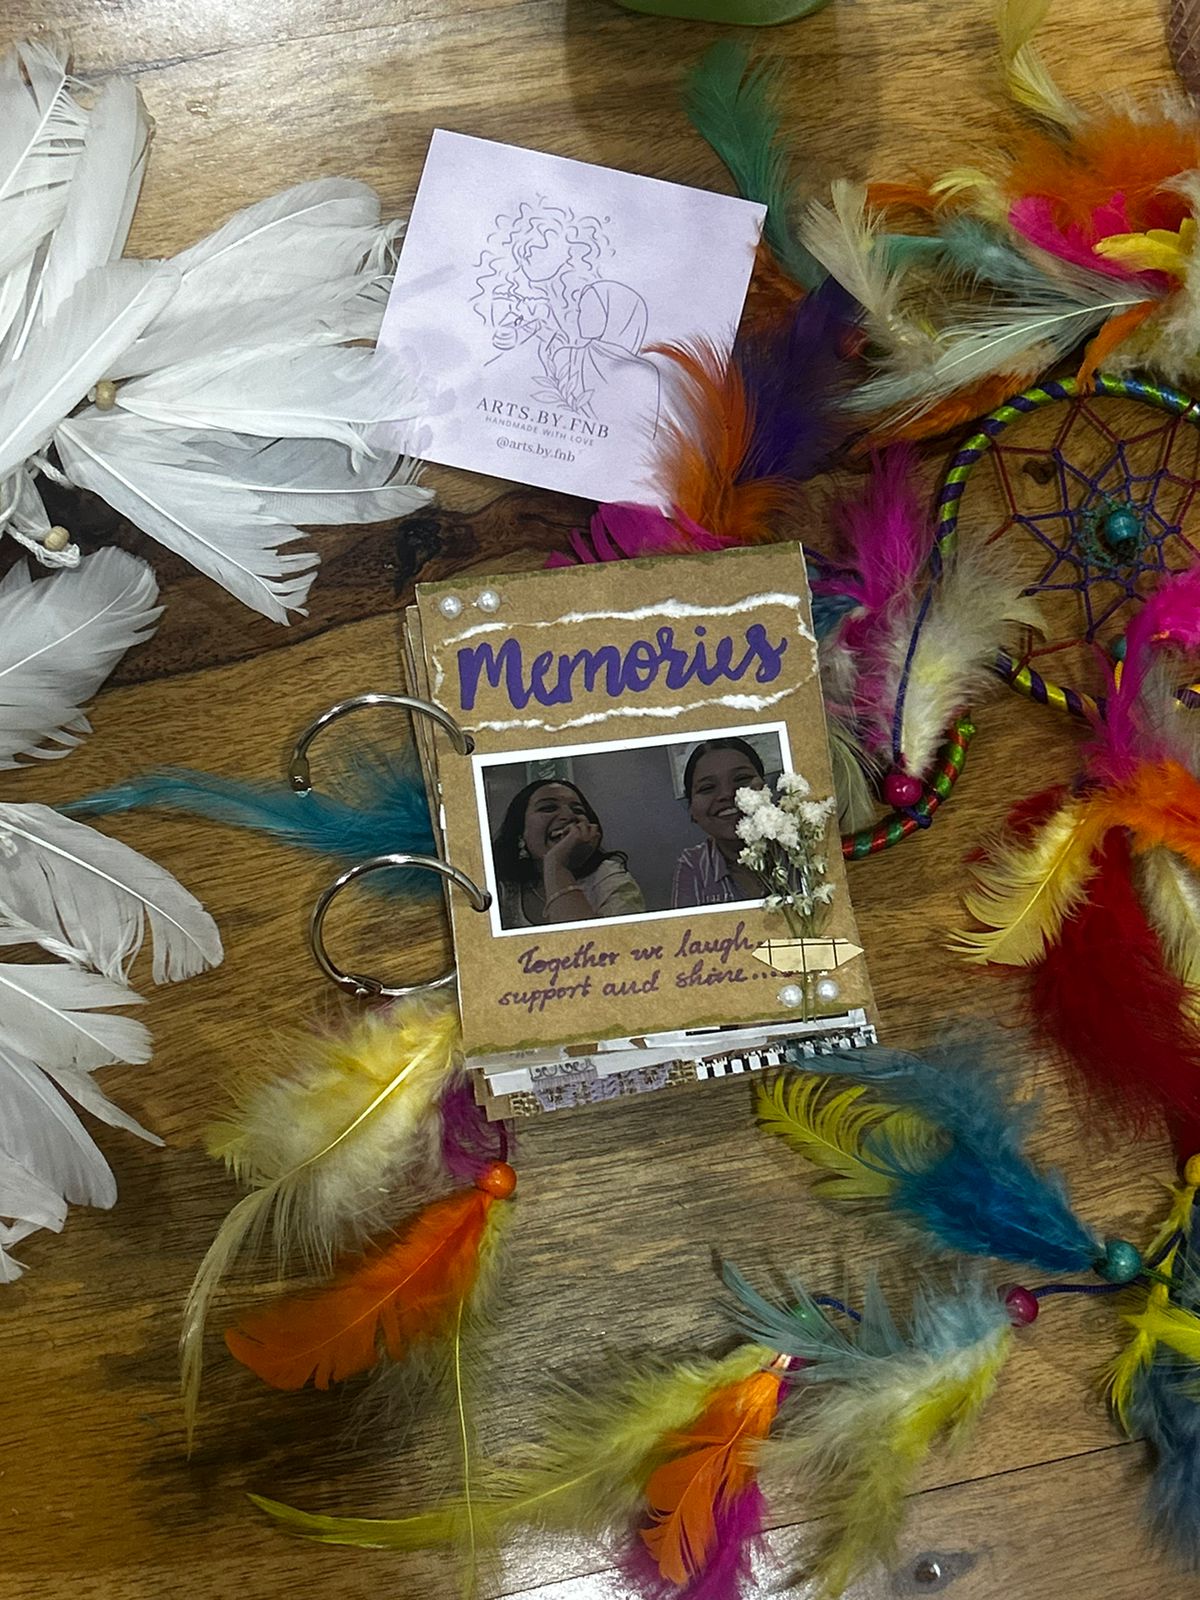 ARTS.BY.FNB
HANDMADE WITH LOVE
@arts.by.fnb
Memories
Together we laugh,
support and shine....